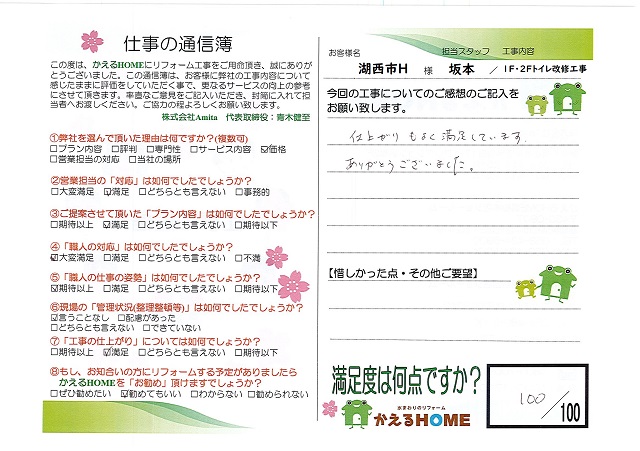 仕事の通信簿
この度は、かえるHOMEにリフォーム工事をご用命頂き、誠にありが
とうございました。この通信簿は、お客様に弊社の工事内容について
感じたままに評価をしていただく事で、更なるサービスの向上の参考
にさせて頂きます。率直なご意見をご記入いただき、封筒に入れて担
当者へお渡しください。ご協力の程よろしくお願い致します。
株式会社Amita 代表取締役：青木健至
①弊社を選んで頂いた理由は何ですか?(複数可)
□プラン内容 □評判 □専門性 □サービス内容 ☑価格
□営業担当の対応 □当社の場所
②営業担当の「対応」は如何でしたでしょうか?
□大変満足 ☑満足 □どちらとも言えない □事務的
③ご提案させて頂いた「プラン内容」は如何でしたでしょうか?
□期待以上 ☑満足 □どちらとも言えない □期待以下
④「職人の対応」は如何でしたでしょうか?
☑大変満足 □満足 □どちらとも言えない □不満
⑤「職人の仕事の姿勢」は如何でしたでしょうか?
☑期待以上 □満足 □どちらとも言えない □期待以下
⑥現場の「管理状況(整理整頓等)」は如何でしたでしょうか?
☑言うことなし □配慮があった
□どちらとも言えない □できていない
⑦「工事の仕上がり」については如何でしたでしょうか?
□期待以上 ☑満足 □どちらとも言えない □期待以下
⑧もし、お知合いの方にリフォームする予定がありましたら
かえるHOMEを「お勧め」頂けますでしょうか?
□ぜひ勧めたい ☑勧めてもいい □わからない □勧められない
お客様名 担当スタッフ 工事内容
湖西市H 様 坂本 / 1F・2Fトイレ改修工事
今回の工事についてのご感想のご記入を
お願い致します。
仕上がりもよく満足しています。
ありがとうございました。
【惜しかった点・その他ご要望】
満足度は何点ですか?
100/100
水まわりのリフォーム
かえるHOME